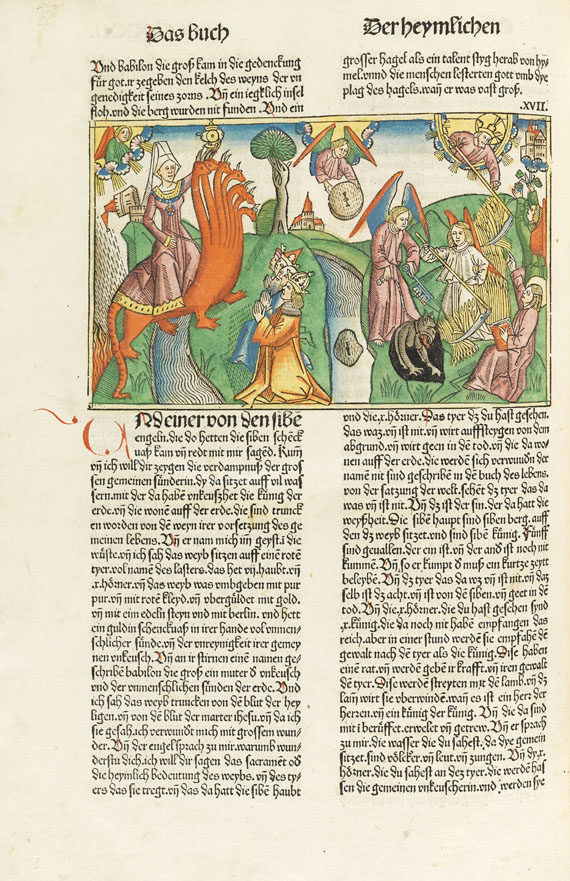 Das buch
Der heymlichen
Vnd babilon die groß kam in die gedenckung
für got.ir zegeben den kelch des weyns der vn
genedigkeit seines zorns. Vn̄ ein iegklich insel
floh.vnd die berg wurden nit funden. Vnd ein
grosser hagel als ein talent styg herab von hy⸗
mel.vnnd die menschen lesterten gott vmb dye
plag des hagels.wañ er was vast groß.
.XVII.
Nd einer von den sibē
engeln.die do hetten die siben schēck
uaß kam vn̄ redt mit mir sagēd. Kum̄
vn̄ ich will dir zeygen die verdampnuß der gros
sen gemeinen sünderin.dy da sitzet auff vil was
sern.mit der da habē vnkeüschet die künig der
erde.vn̄ die wonē auff der erde.die sind trunck
en worden von dē weyn irer vorsetzung des ge
meinen lebens. Vn̄ er nam mich im̄ geyst.i die
wüste.vn̄ ich sah das weyb sitzen auff einē rotē
tyer.vol namē des lasters.das het vij.haubt.vn̄
x.hörner.vn̄ das weyb was vmbgeben mit pur
pur.vn̄ mit rotē kleyd.vn̄ vbergüldet mit gold.
vn̄ mit eim edeln steyn vnd mit berlin. vnd hett
ein guldin schenckuaß in irer hande vol vnmen⸗
schlicher sünde.vn̄ der vnreynigkeit irer gemey
nen vnkeusch. Vn̄ an ir stirnen einē namen ge⸗
schribē babilon die groß ein muter d̄ vnkeusch
vnd der vnmenschlichen sünden der erde. Vnd
ich sah das weyb truncken von dē blut der hey
ligen.vn̄ von dē blut der marter ihesu.vn̄ da ich
sie gesah.ich verwundt mich mit grossem wun⸗
der. Vn̄ der engel sprach zu mir.warumb wun⸗
derstu dich.ich will dir sagen das sacramēt od̄
die heymlich bedeutung des weybs. vn̄ des ty⸗
ers das sie tregt.vn̄ das da hatt die sibē haubt
vnd die.x.hörner. Das tyer dz du hast gesehen.
das waz.vn̄ ist nit.vn̄ wirt auffsteygen von dem
abgrund.vn̄ wirt geen in dē tod.vn̄ die da wo⸗
nen auff der erde.die werdē sich verwundn̄ der
namē nit sind geschribē in dē buch des lebens.
von der satzung der welt.sehēt dz tyer das da
was vn̄ ist nit. Vn̄ dz ist der sin.der da hatt die
weyßheit. Die sibē haupt sind siben berg. auff
den dz weyb sitzet.vnd sind sibē künig. Fünff
sind geuallen.der ein ist.vn̄ der and̄ ist noch nit
kummen. Vn̄.so er kumpt d̄ muß ein kurtze zeytt
beleybē. Vn̄ dz tyer das da wz vn̄ ist nit.vn̄ daz
selb ist dz acht.vn̄ ist von dē siben.vn̄ geet in dē
tod. Vn̄ die.x.hörner.die du hast gesehen synd
.x.künig.die da noch nit habē empfangen das
reich.aber in einer stund werdē sie empfahē dē
gewalt nach dē tyer als die künig. Dise haben
einē rat.vn̄ werdē gebē ir krafft.vn̄ iren gewalt
dē tyer. Dise werdē streyten mit dē lamb.vn̄ dz
lam̄ wirt sie vberwindē.wañ es ist ein herz der
herzen.vn̄ ein künig der künig. Vn̄ die da sind
mit i berüffet.erwelet vn̄ getrew. Vn̄ er sprach
zu mir.die wasser die du sahest.da dye gemein
sitzet.sind völcker.vn̄ leut.vn̄ zungen. Vn̄ dy.x.
hörner.die du sahest an dez tyer.die werdē has
sen die gemeinen vnkeuscherin.vnd werden sye